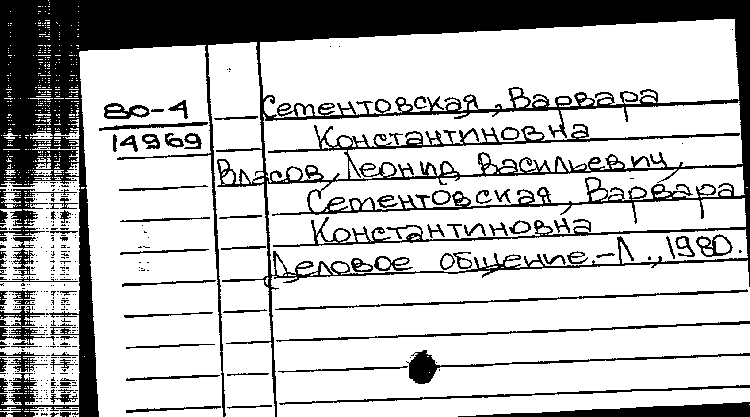 80-4 Сементовская, Варвара
14969 Константиновна
Власов, Леонид Васильевич,
Сементовская, Варвара
Константиновна
Деловое общение.-Л., 1980.